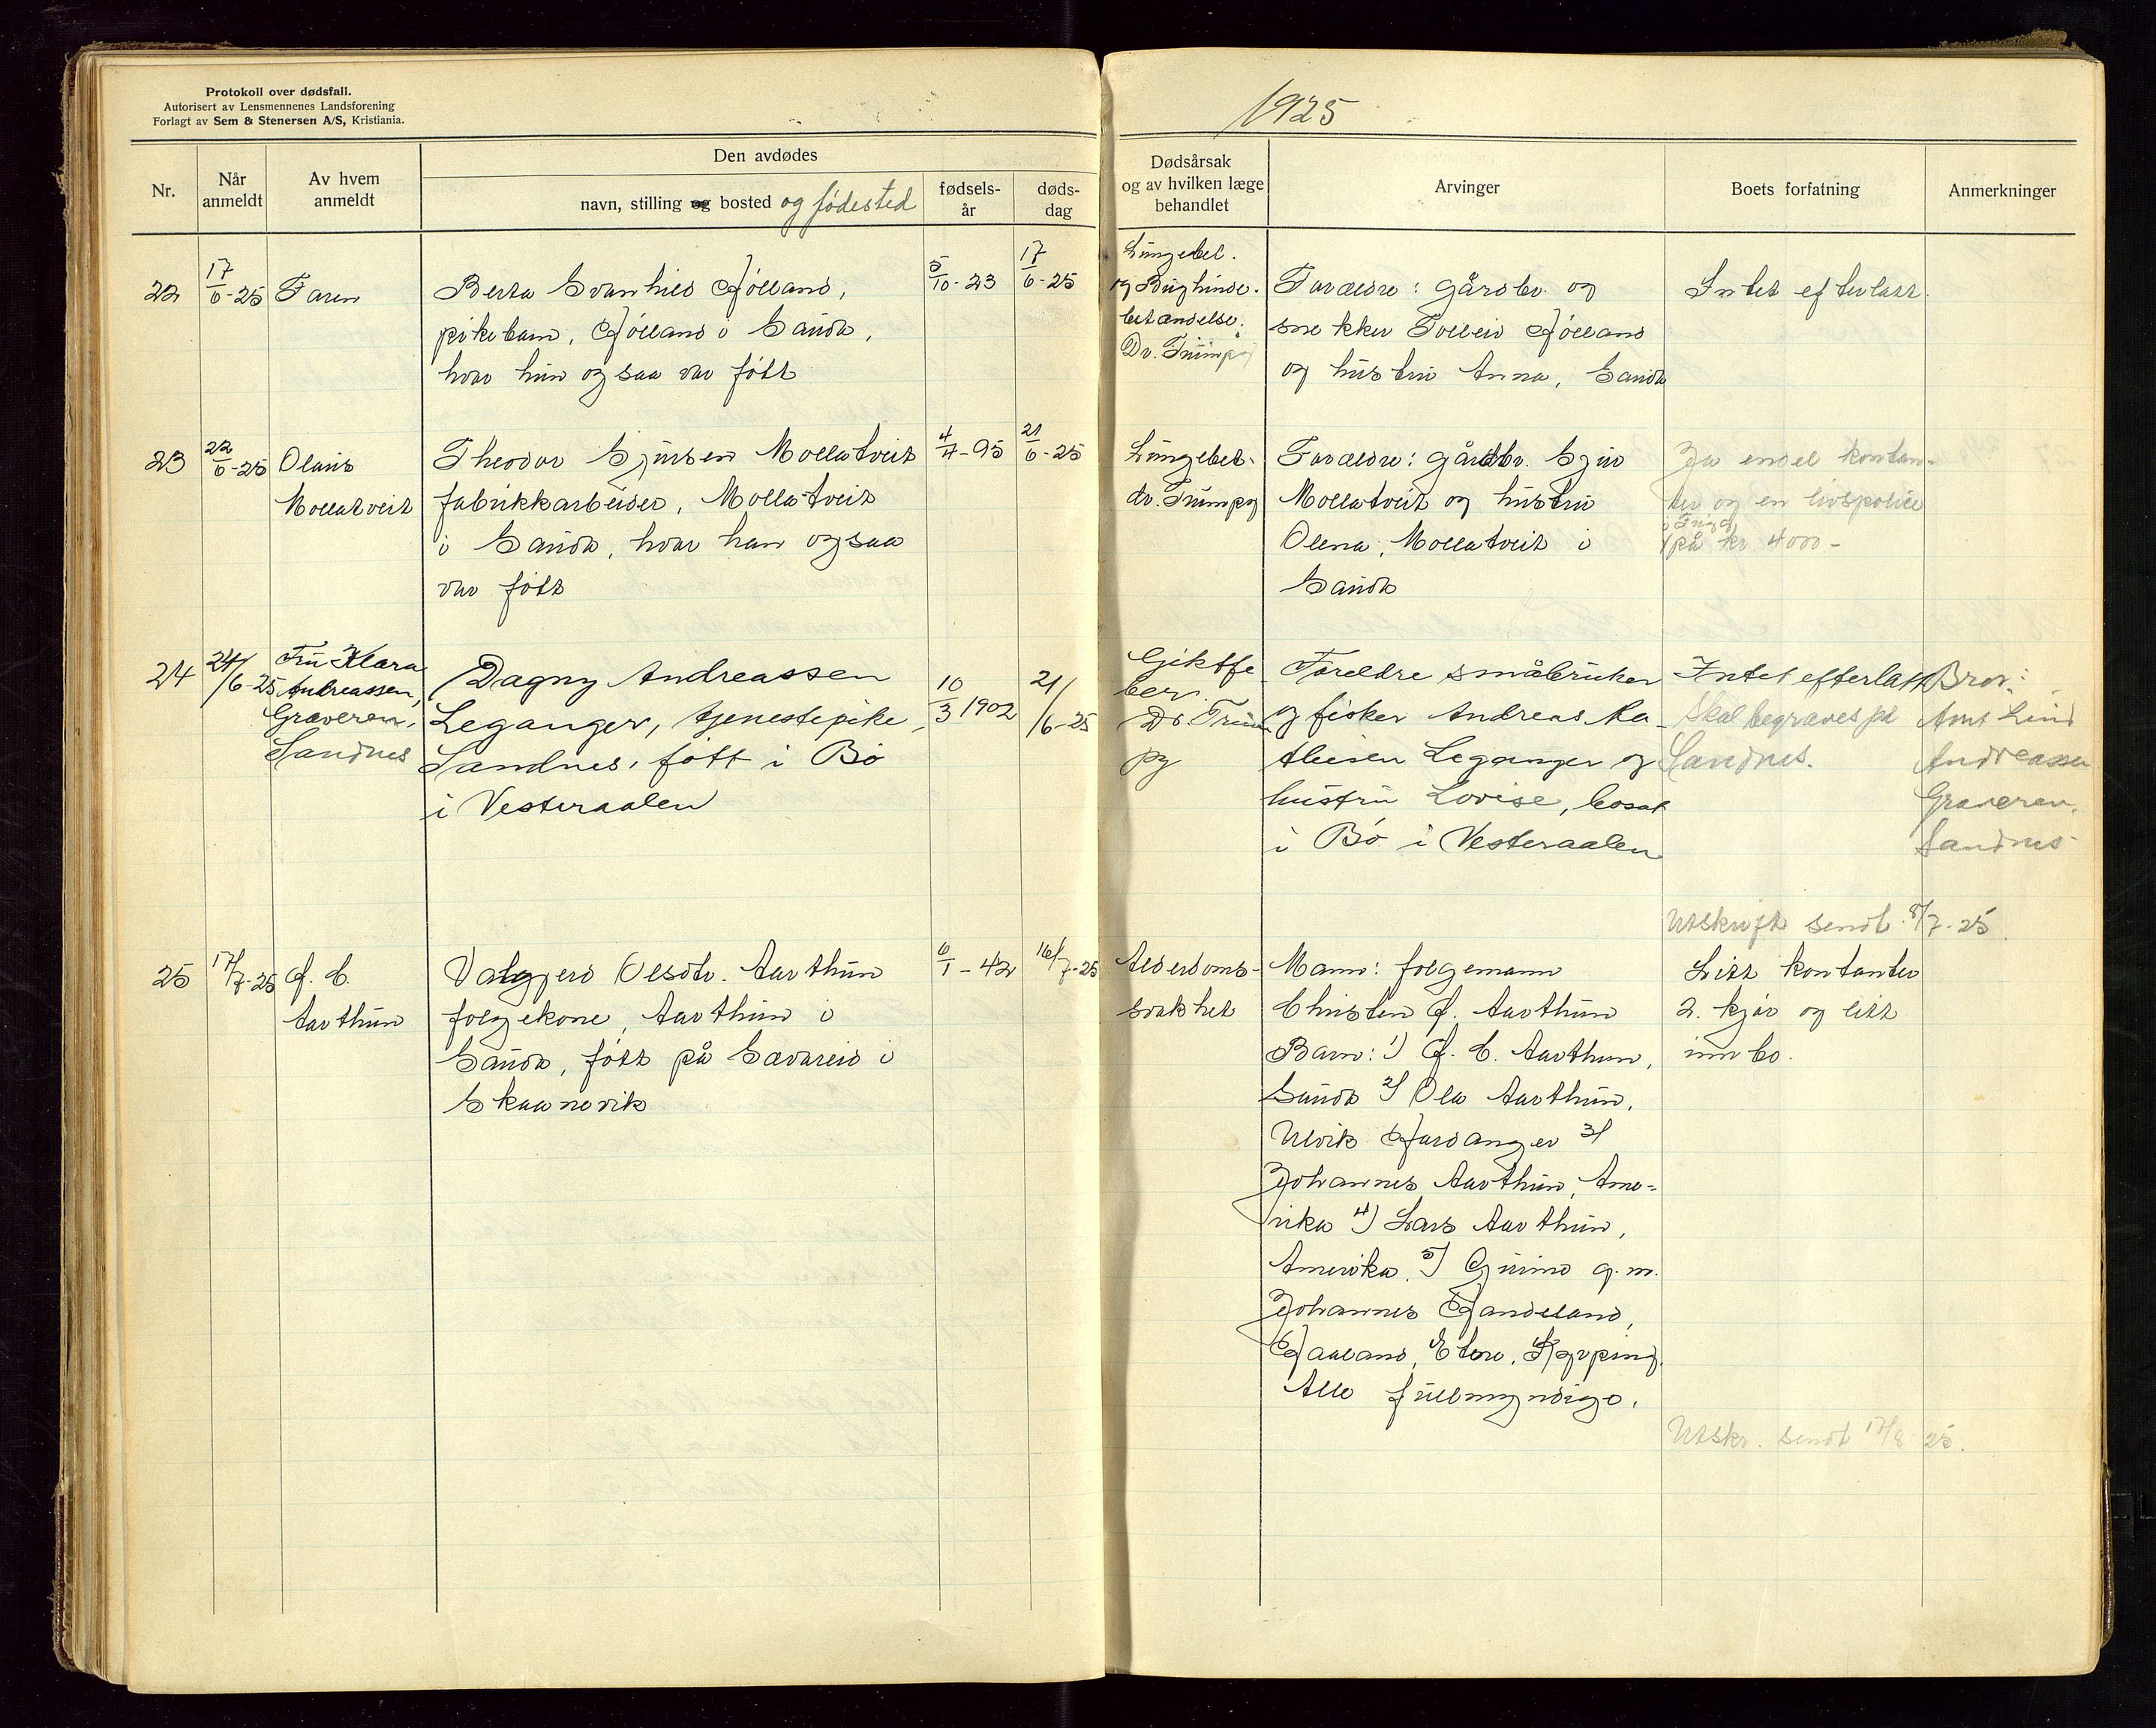 Protokoll over dødsfall.
Autorisert av Lensmennenes Landsforening
Forlagt av Sem & Stenersen A/S, Kristiania.
1925
Nr.
Når anmeldt
Av hvem anmeldt
Den avdødes
navn, stilling og bosted og fødested
fødsels-år
døds-dag
Dødsårsak og av hvilken læge behandlet
Arvinger
Boets forfatning
Anmerkninger
22
17/6-25
Faren
Berta Svanhild Hólland,
pikebarn, Hólland i Sauda,
hvor hun ogsaa var fótt
5/10-23
17/6-25
Lungebet.
og Bughinde-
betændelse.
Dr. Trumpy
Forældre: gårdbr. og
snekker Tolleiv Hólland
og hustru Anna, Sauda
Intet efterlatt.
23
22/6-25
Olaus
Mollatveit
Theodor Sjursen Mollatveit
fabrikkarbeider, Mollatveit
i Sauda, hvor han ogsaa
var fótt
4/7-95
21/6-25
Lungebet.
dr. Trumpy
Forældre: gårdbr. Sjur
Mollatveit og hustru
Olena, Mollatveit i
Sauda
Ja endel kontan-
ter og en livspolice
på kr 4000-
24
24/6-25
Fru Klara
Andreassen,
Graveren,
Sandnes
Dagny Andreassen
Leganger, tjenestepike,
Sandnes, fótt i Bó
i Vesteraalen
10/3 1902
21/6-25
Giktfe
ber.
Dr Trum
py
Foreldre småbruker
og fisker Andreas Ka-
thisen Leganger og
hustru Lovise, bosat
i Bó i Vesteraalen
Intet efterlatt
Skal begraves på
Sandnes.
Bror:
Arnt Lind
Andreassen
Graveren.
Sandnes
Utskrift sendt 8/7-25
25
17/7-25
H. C.
Aarthun
Valgjerd Olsdtr. Aarthun
folgekone, Aarthun i
Sauda, fótt på Sævareid i
Skaanevik
6/1-42
16/7-25
Alderdoms-
svakhet
Mann: folgemann
Christen H. Aarthun
Barn: 1) H. C. Aarthun,
Sauda 2) Ola Aarthun,
Ulvik Hardanger 3)
Johannes Aarthun, Ame-
rika 4) Lars Aarthun,
Amerika. 5) Guro g.m.
Johannes Handeland,
Haaland, Etne.
Alle fullmyndige.
Litt kontanter
2. kjór og litt
innbo.
Utskr. sendt 17/8 25.